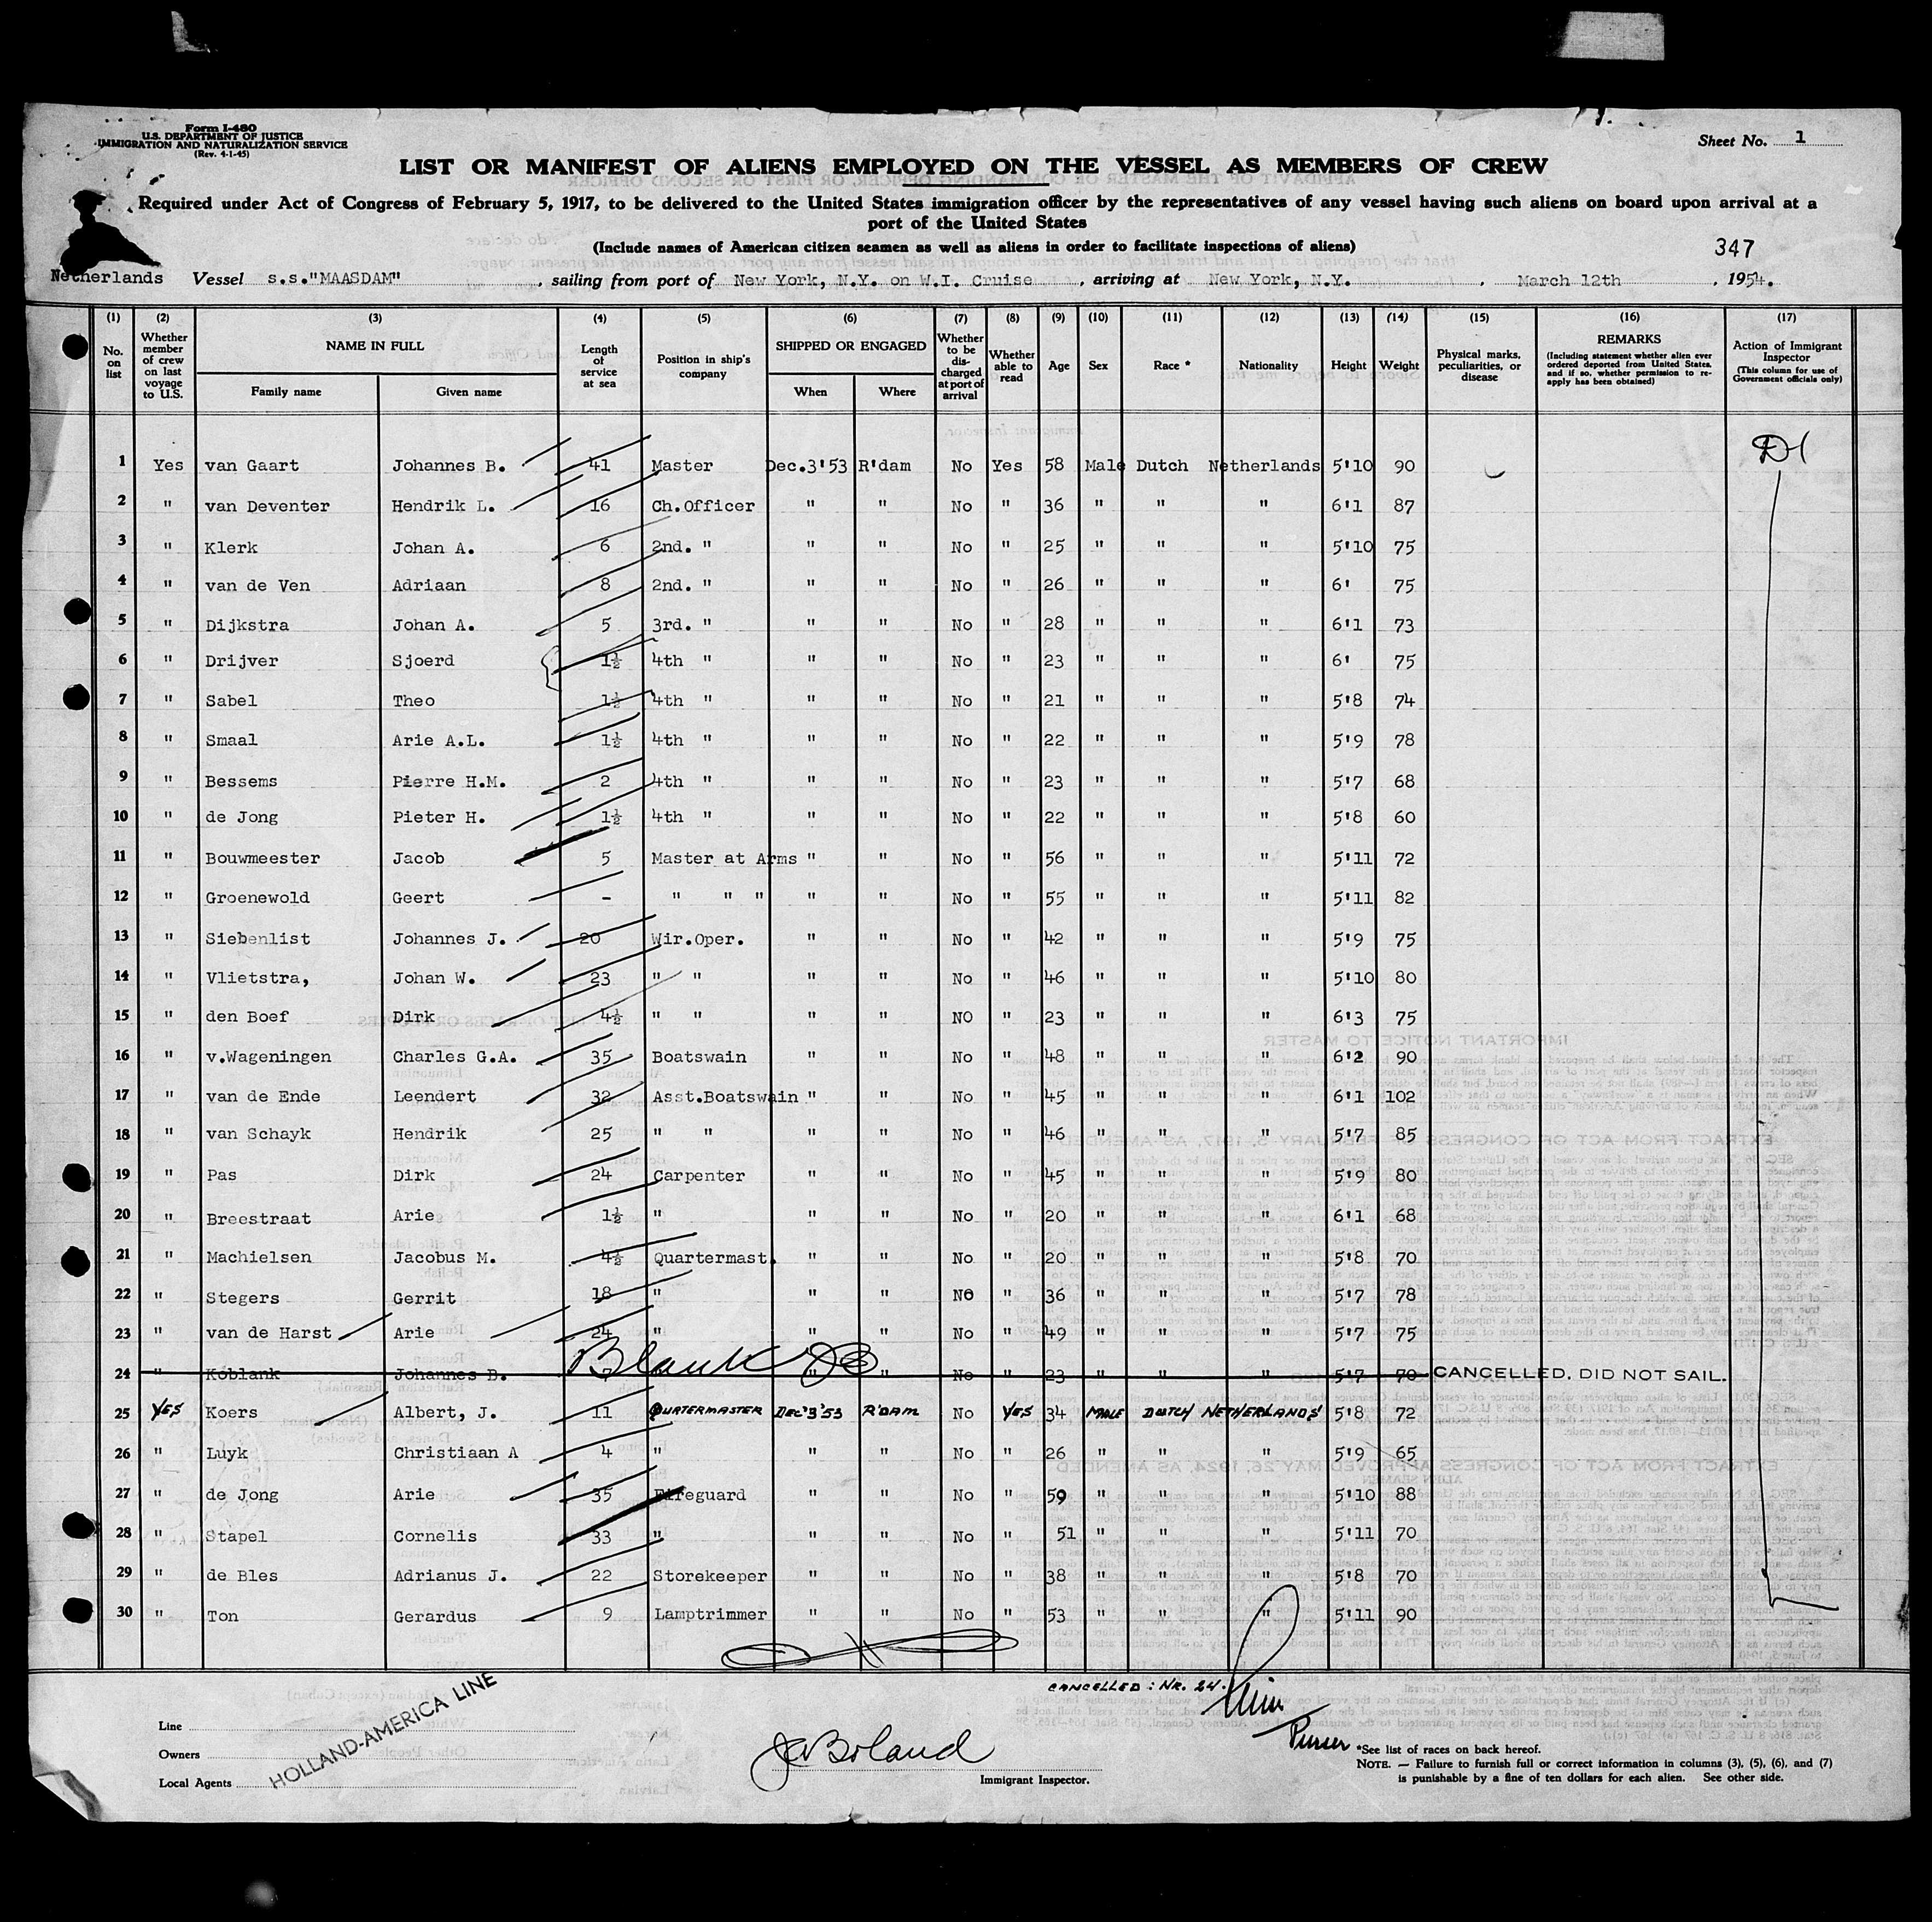 Form I-480
U.S. DEPARTMENT OF JUSTICE
IMMIGRATION AND NATURALIZATION SERVICE
(Rev. 4-1-45)
Sheet No. 1
LIST OR MANIFEST OF ALIENS EMPLOYED ON THE VESSEL AS MEMBERS OF CREW
Required under Act of Congress of February 5, 1917, to be delivered to the United States immigration officer by the representatives of any vessel having such aliens on board upon arrival at a
port of the United States
(Include names of American citizen seamen as well as aliens in order to facilitate inspections of aliens)
347
Netherlands Vessel s.s."MAASDAM" , sailing from port of New York, N.Y. on W.I. Cruise , arriving at New York, N.Y. , March 12th , 1954.
(1) (2) (3) (4) (5) (6) (7) (8) (9) (10) (11) (12) (13) (14) (15) (16) (17)
No. on list
Whether member of crew on last voyage to U.S.
NAME IN FULL
Family name Given name
Length of service at sea
Position in ship's company
SHIPPED OR ENGAGED
When Where
Whether to be discharged at port of arrival
Whether able to read
Age Sex Race * Nationality Height Weight
Physical marks, peculiarities, or disease
REMARKS
(Including statement whether alien ever ordered deported from United States, and if so, whether permission to re-apply has been obtained)
Action of Immigrant Inspector
(This column for use of Government officials only)
1 Yes van Gaart Johannes B. 41 Master Dec.3'53 R'dam No Yes 58 Male Dutch Netherlands 5'10 90
2 " van Deventer Hendrik L. 16 Ch.Officer " " No " 36 " " " 6'1 87
3 " Klerk Johan A. 6 2nd. " " " No " 25 " " " 5'10 75
4 " van de Ven Adriaan 8 2nd. " " " No " 26 " " " 6' 75
5 " Dijkstra Johan A. 5 3rd. " " " No " 28 " " " 6'1 73
6 " Drijver Sjoerd 1½ 4th " " " No " 23 " " " 6' 75
7 " Sabel Theo 1½ 4th " " " No " 21 " " " 5'8 74
8 " Smaal Arie A.L. 1½ 4th " " " No " 22 " " " 5'9 78
9 " Bessems Pierre H.M. 2 4th " " " No " 23 " " " 5'7 68
10 " de Jong Pieter H. 1½ 4th " " " No " 22 " " " 5'8 60
11 " Bouwmeester Jacob 5 Master at Arms " " No " 56 " " " 5'11 72
12 " Groenewold Geert - " " " " " No " 55 " " " 5'11 82
13 " Siebenlist Johannes J. 20 Wir.Oper. " " No " 42 " " " 5'9 75
14 " Vlietstra, Johan W. 23 " " " " No " 46 " " " 5'10 80
15 " den Boef Dirk 4½ " " " " NO " 23 " " " 6'3 75
16 " v.Wageningen Charles G.A. 35 Boatswain " " No " 48 " " " 6'2 90
17 " van de Ende Leendert 32 Asst.Boatswain " " No " 45 " " " 6'1 102
18 " van Schayk Hendrik 25 " " " " No " 46 " " " 5'7 85
19 " Pas Dirk 24 Carpenter " " No " 45 " " " 5'9 80
20 " Breestraat Arie 1½ " " " No " 20 " " " 6'1 68
21 " Machielsen Jacobus M. 4½ Quartermast. " " No " 20 " " " 5'8 70
22 " Stegers Gerrit 18 " " " No " 36 " " " 5'7 78
23 " van de Harst Arie 24 " " " No " 49 " " " 5'7 75
Blank
24 Koblank Johannes B. 7 " " No " 23 " " " 5'7 70 CANCELLED. DID NOT SAIL.
25 YES Koers Albert, J. 11 QUATERMASTER DEC'3'53 R'DAM No YES 34 MALE DUTCH NETHERLANDS 5'8 72
26 " Luyk Christiaan A 4 " " " No " 26 " " " 5'9 65
27 " de Jong Arie 35 Fireguard " " No " 59 " " " 5'10 88
28 " Stapel Cornelis 33 " " " No " 51 " " " 5'11 70
29 " de Bles Adrianus J. 22 Storekeeper " " No " 38 " " " 5'8 70
30 " Ton Gerardus 9 Lamptrimmer " " No " 53 " " " 5'11 90
CANCELLED: NR. 24.
Purser
Line
Owners
Local Agents
HOLLAND-AMERICA LINE
Boland
Immigrant Inspector.
*See list of races on back hereof.
NOTE. — Failure to furnish full or correct information in columns (3), (5), (6), and (7)
is punishable by a fine of ten dollars for each alien. See other side.